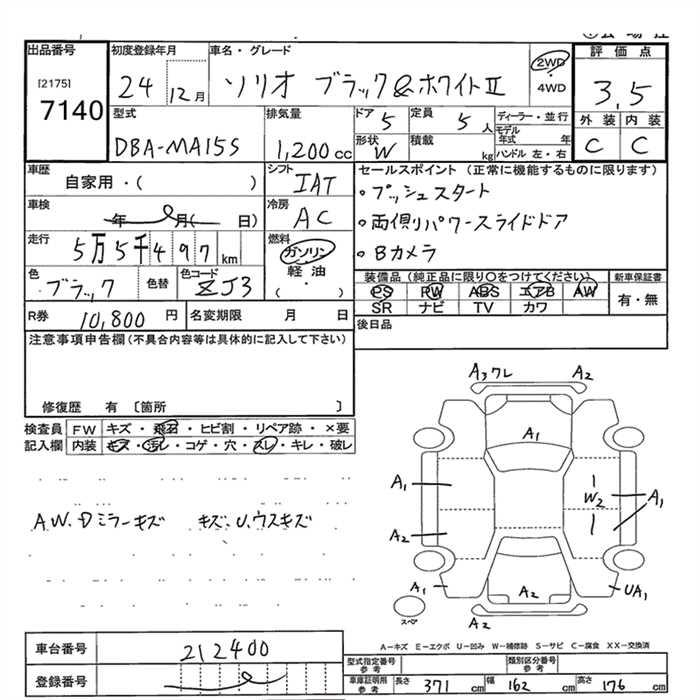 出品番号
[2175]
7140
初度登録年月
24 12月
車名・グレード
ソリオ ブラック&ホワイトⅡ
2WD
・
4WD
評価点
3,5
外装 内装
C C
型式
DBA-MA15S
排気量
1,200cc
ドア 5
定員 5人
形状 W
積載 kg
ディーラー・並行
モデル年式 年
ハンドル 左・右
車歴
自家用・( )
シフト
IAT
車検
年 月( 日)
冷房
AC
走行
5万5千497km
燃料
ガソリン
・
軽油
( ・ )
色
ブラック
色替
色コード
ZJ3
R券 10,800円
名変期限 月 日
セールスポイント (正常に機能するものに限ります)
。プッシュスタート
。両側パワースライドドア
。Bカメラ
装備品(純正品に限り〇をつけてください)
PS PW ABS エアB AW
SR ナビ TV カワ
新車保証書
有・無
後日品
注意事項申告欄(不具合内容等は具体的に記入して下さい)
修復歴 有 〔箇所 〕
検査員記入欄
FW キズ・飛石・ヒビ割・リペア跡・×要
内装 キズ・汚レ・コゲ・穴・スレ・キレ・破レ
A.W、Dミラーキズ キズ、U、ウスキズ
A3ワレ A2
A1
A1 W2 A1
A2
A1 A2 UA1
A2
スペア
A-キズ E-エクボ U-凹み W-補修跡 S-サビ C-腐食 XX-交換済
車台番号 212400
登録番号
型式指定番号参考
類別区分番号参考
車庫証明用参考 長さ 371cm 幅 162cm 高さ 176cm